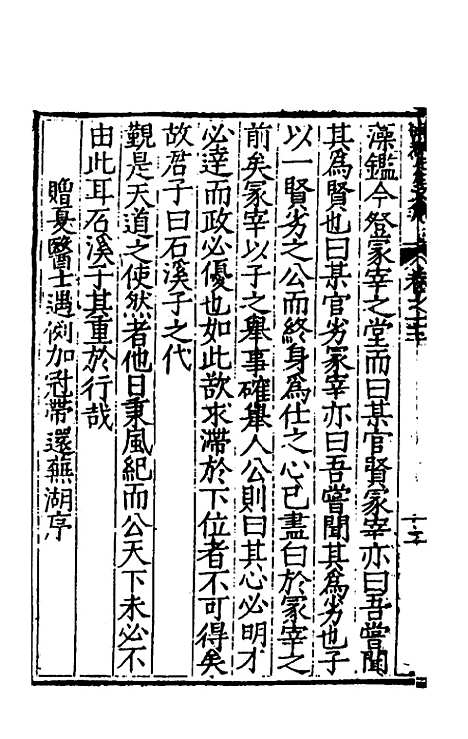 藻鑑今登冢宰之堂而曰某官賢冢宰亦曰吾嘗聞
其為賢也曰某官劣冢宰亦曰吾嘗聞其為劣也子
以一賢劣之公而終身為仕之心已盡白於冢宰之
前矣冢宰以子之舉事確舉人公則曰其心必明才
必達而政必優也如此欲求滯於下位者不可得矣
故君子曰石溪子之代
覲是天道之使然者他日秉風紀而公天下未必不
由此耳石溪子其重於行哉
贈夏醫士遇例加冠帶還蕪湖序